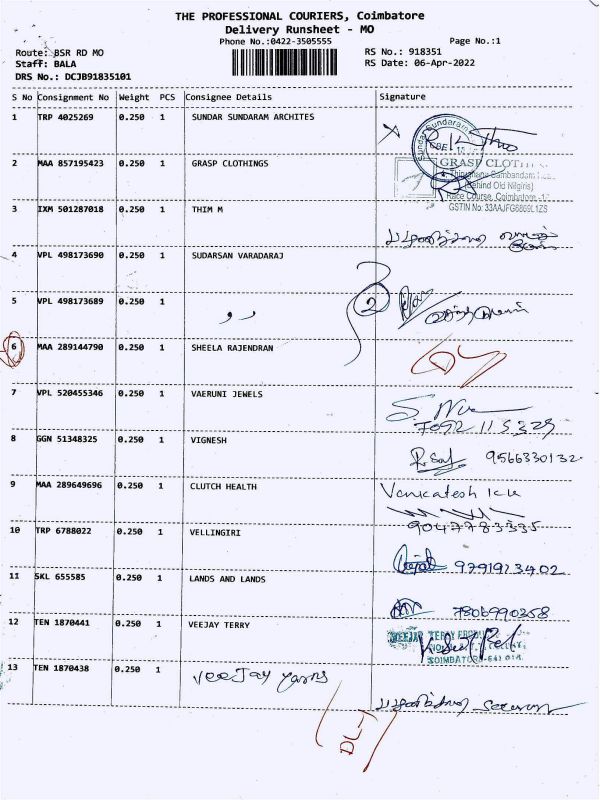 THE PROFESSIONAL COURIERS, Coimbatore
Delivery Runsheet - MO
Phone No.:0422-3505555
Page No.:1
Route: BSR RD MO
RS No.: 918351
Staff: BALA
RS Date: 06-Apr-2022
DRS No.: DCJB91835101
S No Consignment No Weight PCS Consignee Details Signature
1 TRP 4025269 0.250 1 SUNDAR SUNDARAM ARCHITES
2 MAA 857195423 0.250 1 GRASP CLOTHINGS
GRASP CLOTHI
(Behind Old Nilgiris)
Race Course, Coimbatore
3 IXM 501287018 0.250 1 THIM M
GSTIN No:
4 VPL 498173690 0.250 1 SUDARSAN VARADARAJ
5 VPL 498173689 0.250 1
2
6 MAA 289144790 0.250 1 SHEELA RAJENDRAN
7 VPL 520455346 0.250 1 VAERUNI JEWELS
8 GGN 51348325 0.250 1 VIGNESH
9566330132
9 MAA 289649696 0.250 1 CLUTCH HEALTH
Venkatesh
9047783335
10 TRP 6788022 0.250 1 VELLINGIRI
11 SKL 655585 0.250 1 LANDS AND LANDS
7806990358
12 TEN 1870441 0.250 1 VEEJAY TERRY
13 TEN 1870438 0.250 1 VeeJay yarns
DL-1